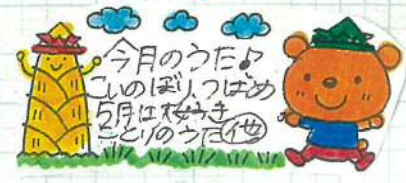 今月のうた♪
こいのぼり、つばめ
5月は大好き
ことりのうた 他